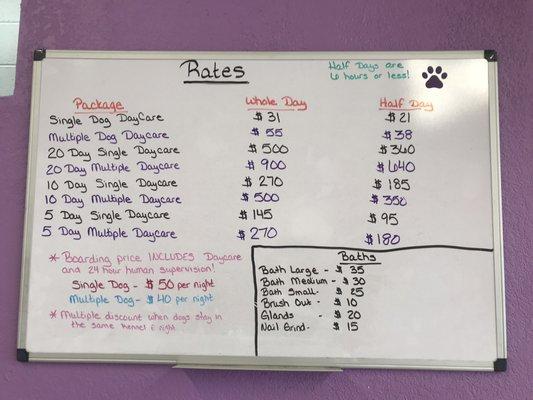 Rates
Half Days are
6 hours or less!
Package Whole Day Half Day
Single Dog DayCare $31 $21
Multiple Dog Daycare $55 $38
20 Day Single Daycare $500 $360
20 Day Multiple Daycare $900 $640
10 Day Single Daycare $270 $185
10 Day Multiple Daycare $500 $350
5 Day Single Daycare $145 $95
5 Day Multiple Daycare $270 $180
* Boarding price INCLUDES Daycare
and 24 hour human supervision!
Single Dog - $50 per night
Multiple Dog - $40 per night
* Multiple discount when dogs stay in
the same kennel @ night
Baths
Bath Large - $35
Bath Medium - $30
Bath Small - $25
Brush Out - $10
Glands - $20
Nail Grind - $15